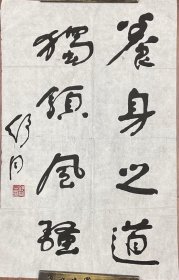 養身之道
獨領風騷
舒同